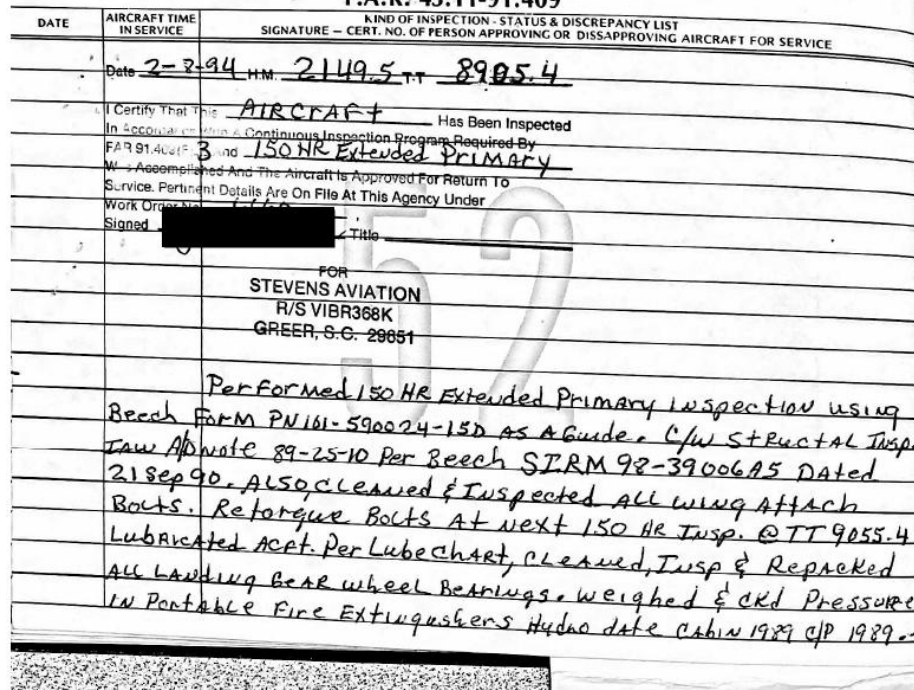 F.A.R. 43.11-91.409
DATE
AIRCRAFT TIME
IN SERVICE
KIND OF INSPECTION - STATUS & DISCREPANCY LIST
SIGNATURE — CERT. NO. OF PERSON APPROVING OR DISSAPPROVING AIRCRAFT FOR SERVICE
Date 2-8-94 H.M. 2149.5 T.T. 8905.4
I Certify That This AIRCrAFt Has Been Inspected
In Accordance With A Continuous Inspection Program Required By
FAR 91.409(F) 3 and 150 HR Extended PrIMARY
Was Accomplished And The Aircraft Is Approved For Return To
Service. Pertinent Details Are On File At This Agency Under
Work Order No
Signed Title
FOR
STEVENS AVIATION
R/S VIBR368K
GREER, S.C. 29651
52
PerFormed 150 HR Extended Primary Inspection using
Beech Form PN 101-590024-15D AS A Guide. C/W StRuctAL Insp
IAW A/D Note 89-25-10 Per Beech SIRM 98-39006A5 Dated
21 Sep 90. ALSO, cLeaned & Inspected ALL wing AttAch
Bolts. Retorque Bolts At next 150 HR Insp. @ TT 9055.4
LubRicated Acft. Per Lube chart, cleaned, Insp & Repacked
ALL LAnding Gear wheel Bearings. weighed & ckd Pressure
IN Portable Fire Extingushers Hydro date CAbin 1989 C/P 1989.